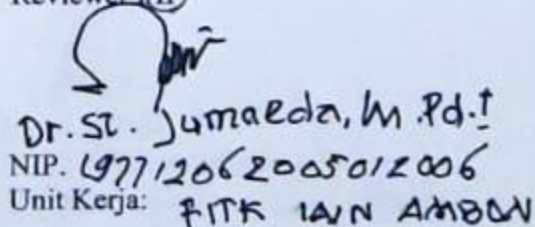 Reviewer
Dr. St. Jumaeda, M.Pd.I
NIP. 197712062005012006
Unit Kerja: FITK IAIN AMBON